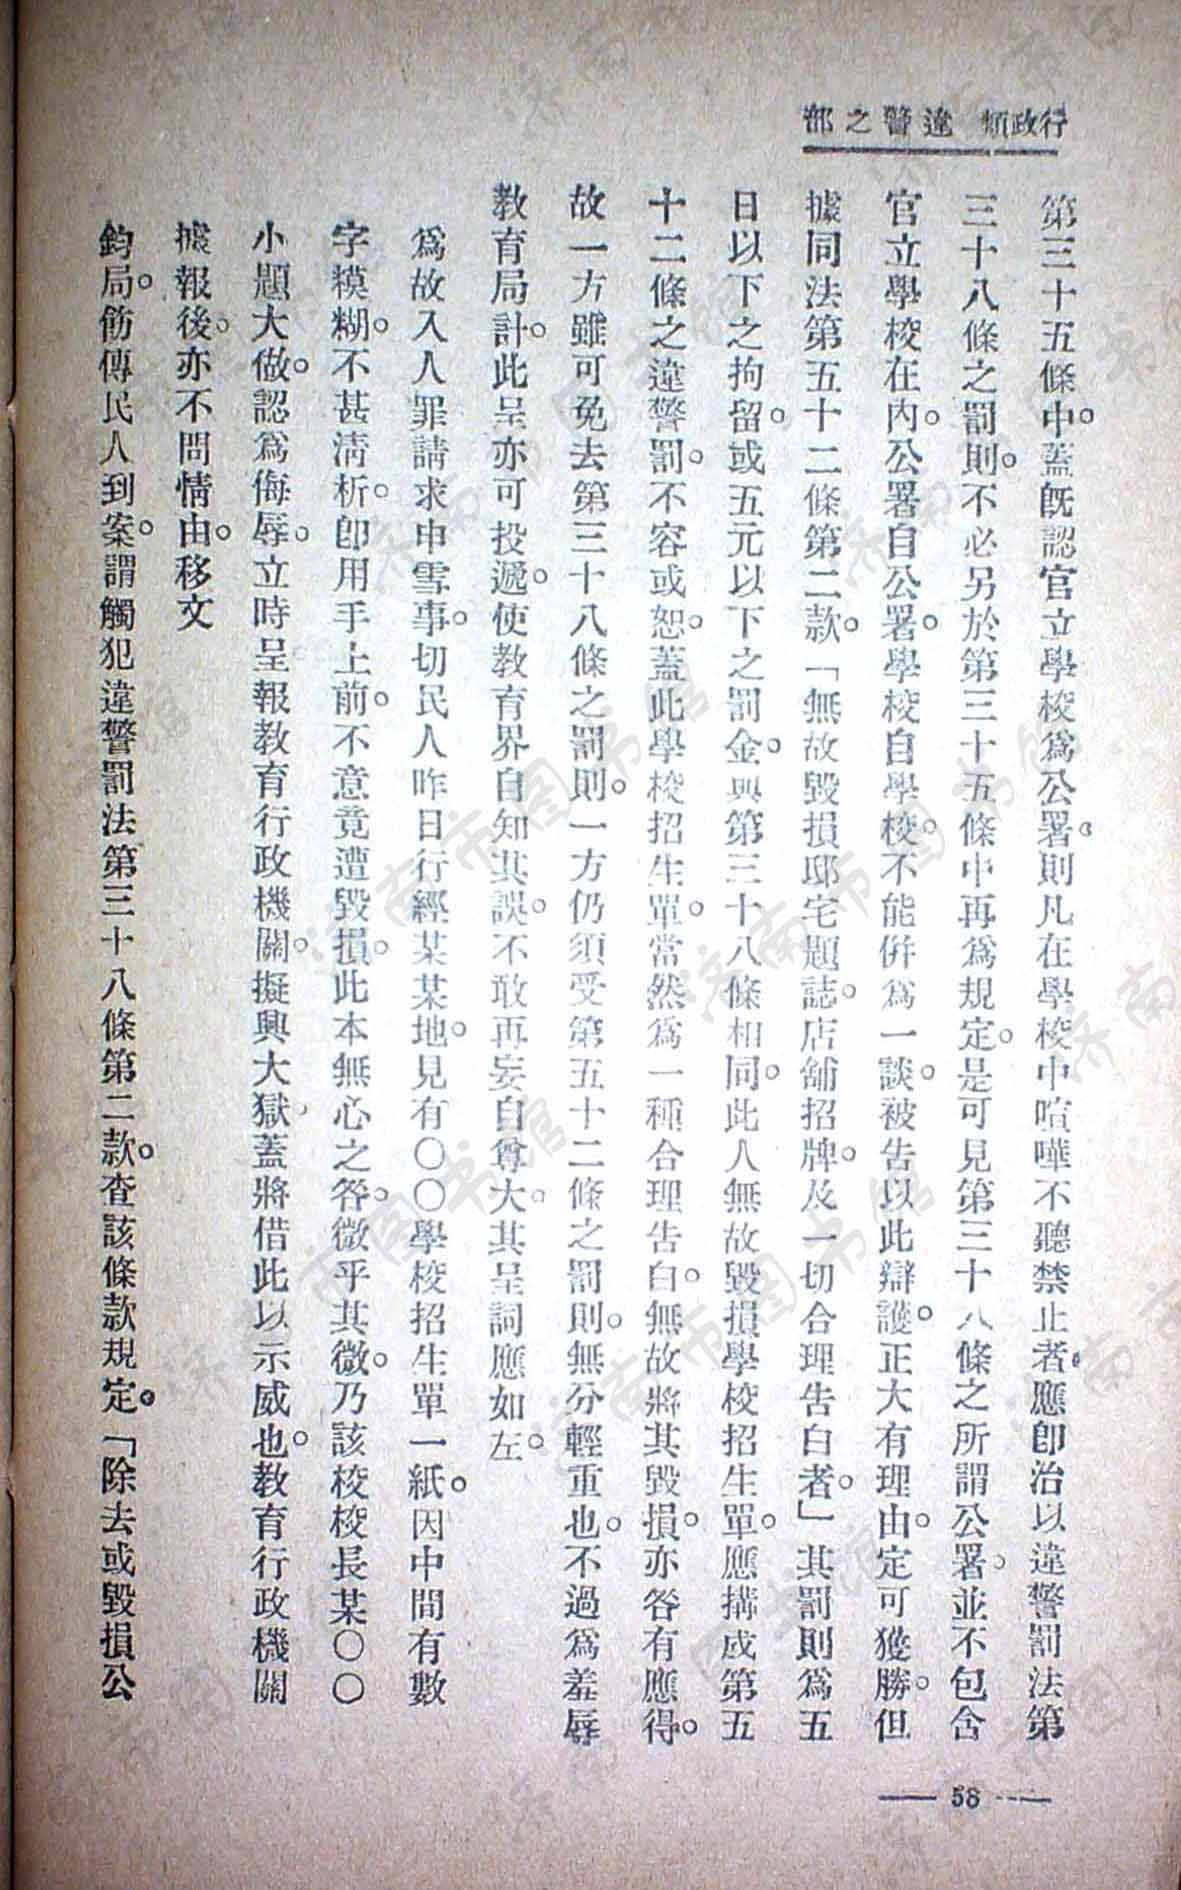 行政類 違警之部
第三十五條中。蓋既認官立學校爲公署。則凡在學校中喧嘩不聽禁止者。應卽治以違警罰法第
三十八條之罰則。不必另於第三十五條中再爲規定。是可見第三十八條之所謂公署。並不包含
官立學校在內。公署自公署。學校自學校。不能併爲一談。被告以此辯護。正大有理由。定可獲勝。但
據同法第五十二條第二款。「無故毀損邸宅題誌。店舖招牌。及一切合理告白者。」其罰則爲五
日以下之拘留。或五元以下之罰金。與第三十八條相同。此人無故毀損學校招生單。應搆成第五
十二條之違警罰。不容或恕。蓋此學校招生單。當然爲一種合理告白。無故將其毀損。亦咎有應得。
故一方雖可免去第三十八條之罰則。一方仍須受第五十二條之罰則。無分輕重也。不過爲羞辱
教育局計。此呈亦可投遞。使教育界自知其誤。不敢再妄自尊大。其呈詞應如左。
爲故入人罪請求申雪事。切民人昨日行經某某地。見有〇〇學校招生單一紙。因中間有數
字糢糊。不甚清析。卽用手上前。不意竟遭毀損。此本無心之咎。微乎其微。乃該校校長某〇〇
小題大做。認爲侮辱。立時呈報教育行政機關。擬興大獄。蓋將借此以示威也。教育行政機關
據報後。亦不問情由。移文
鈞局。飭傳民人到案。謂觸犯違警罰法第三十八條第二款。查該條款規定。「除去或毀損公
58
济南市图书馆